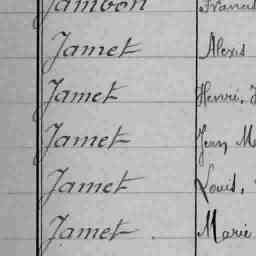 Jambon Franc
Jamet Alexis
Jamet Henri, J
Jamet Jean M
Jamet Louis,
Jamet Marie